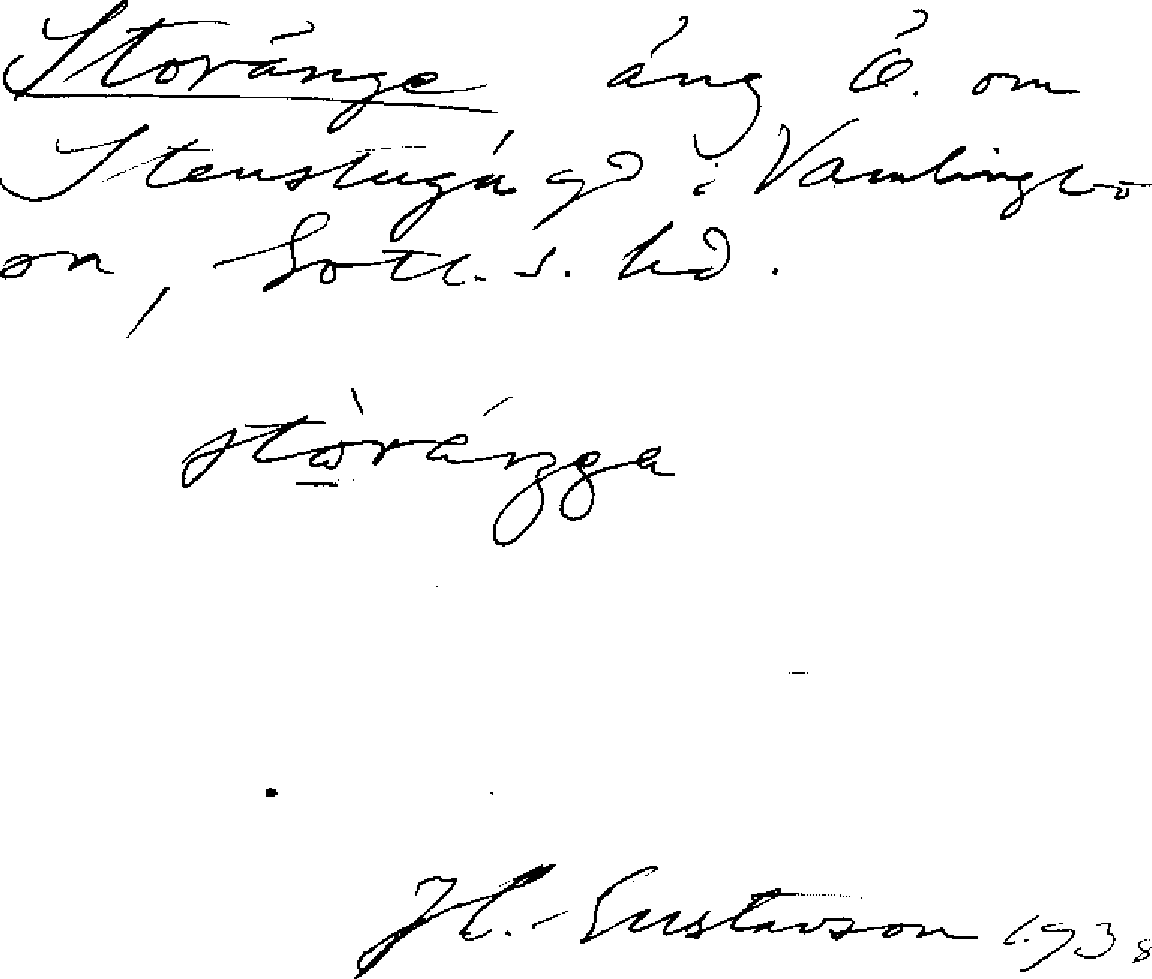 Storänge äng Ö. om
Stenstugu gd i Vamlingbo
sn, Gotl. s. hd.
stòrángga
H. Gustavson 1938